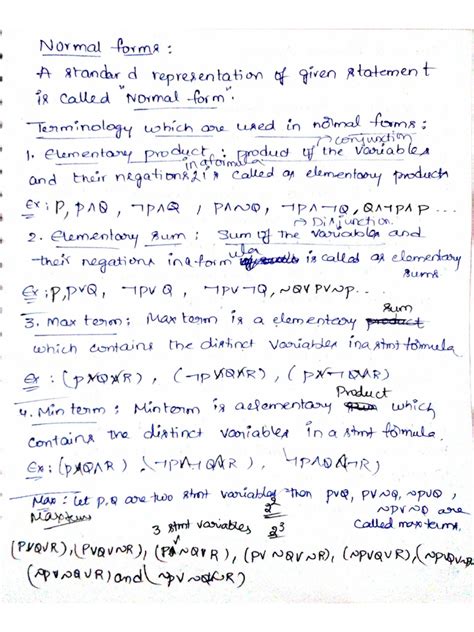 Normal forms :
A standard representation of given statement
is called "Normal form".
Terminology which are used in normal forms :
→ conjunction
1. Elementary product : product of the variables
and their negations in a formula is called as elementary products
Ex : P, P∧Q , ¬P∧Q , P∧∾Q , ¬P∧¬Q, Q∧¬P∧P ...
→ Disjunction
2. Elementary sum : Sum of the variables and
their negations in a formula is called as elementary
sums
Ex : P, P∨Q , ¬P∨Q , ¬P∨¬Q, ∾Q∨P∨∾P ...
3. Max term : Max term is a elementary sum
which contains the distinct variables in a stmt formula
Ex : (P∨Q∨R) , (¬P∨Q∨R) ,
4. Min term : Minterm is a elementary Product which
contains the distinct variables in a stmt formula.
Ex : (P∧Q∧R) , (¬P∧¬Q∧R) ,
Max : Let P, Q are two stmt variables then P∨Q, P∨∾Q, ∾P∨Q ,
Maxterms 2² ∾P∨∾Q are
3 stmt variables 2³ Called maxterms.
(P∨Q∨R), (P∨Q∨∾R), (P∨∾Q∨R), (P∨∾Q∨∾R), (∾P∨Q∨R),
(∾P∨∾Q∨R) and (∾P∨∾Q∨∾R)